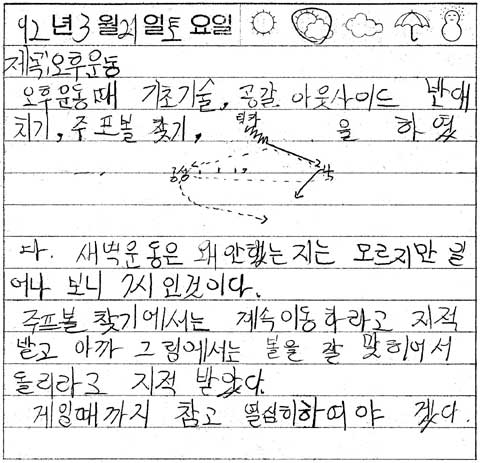 92년 3월 21일 토요일
제목:오후운동
오후운동때 기초기술, 공갈, 아웃사이드 반대
치기, 주프볼 찾기, 을 하였
다. 새벽운동은 왜 안했는지는 모르지만 일
어나 보니 7시 인것이다.
주프볼 찾기에서는 계속이동하라고 지적
받고 아까 그림에서는 볼을 잘 맞히어서
돌리라고 지적 받았다.
게임때까지 참고 열심히하여야 겠다.